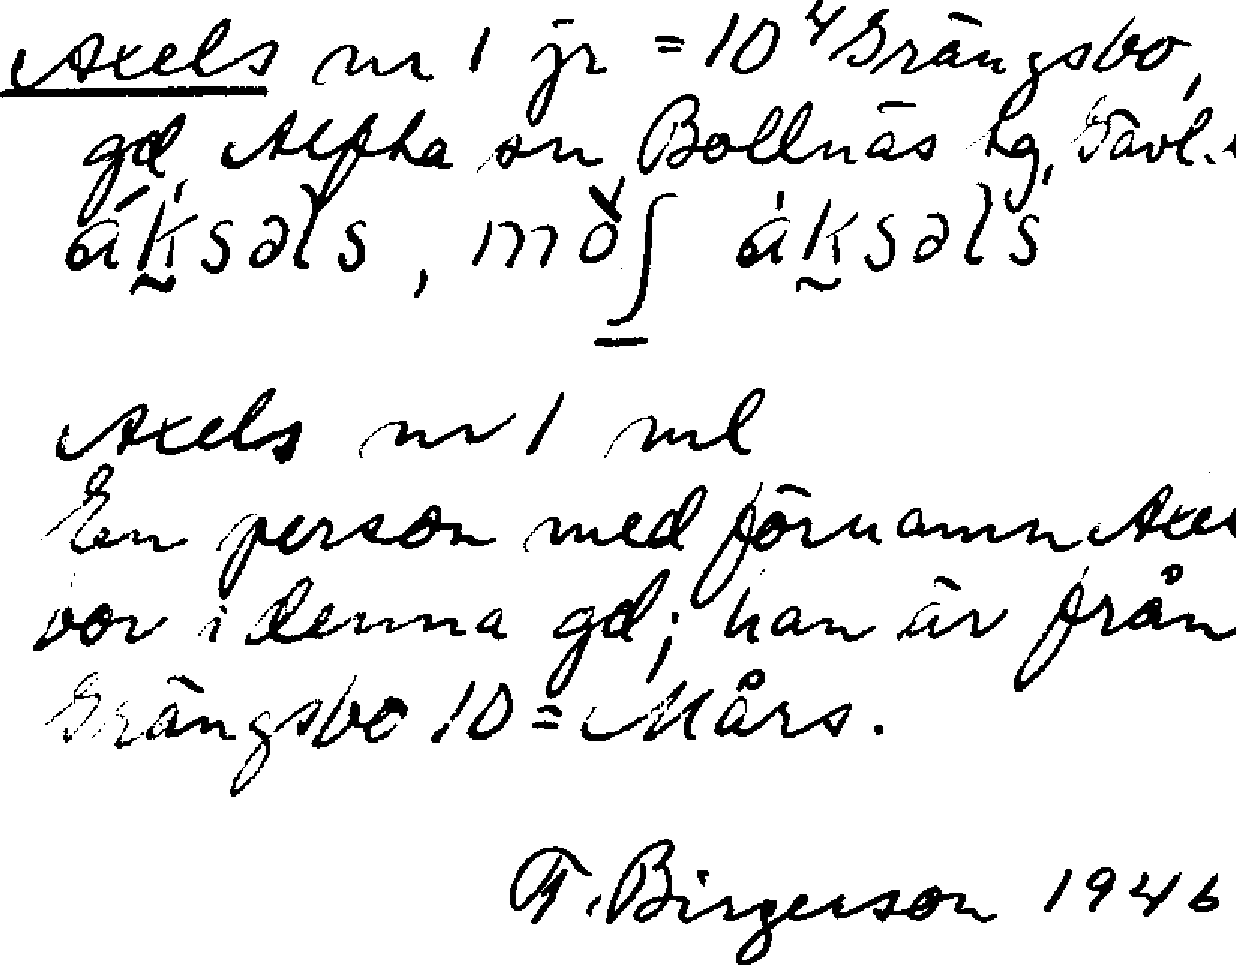 Axels nr 1 jr = 10⁴ Grängsbo,
gd, Alfta sn, Bollnäs tg, Gävl.
áksəls, mɔ̀ʃ áksəls
Axels nr 1 ml
En person med förnamn Axel
bor i denna gd; han är från
Grängsbo 10 = Mårs.
F. Birgerson 1946